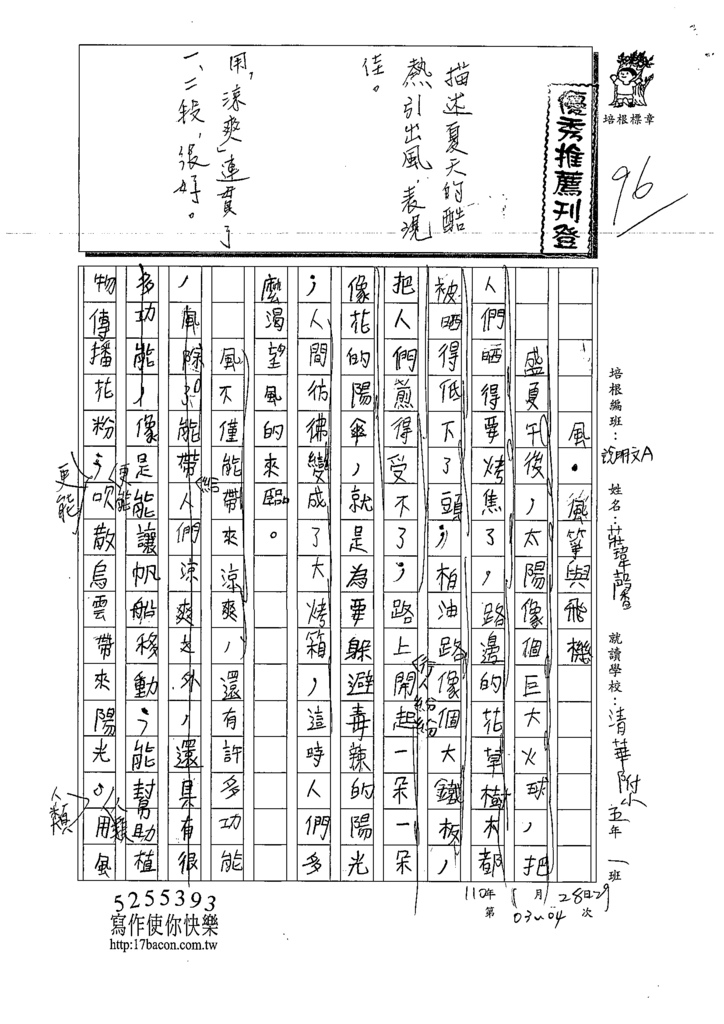 培根標章
優秀推薦刊登
96
描述夏天的酷
熱引出風，表現
佳。
用「涼爽」連貫了
一、二段，很好。
培根編班：說明文A 姓名：莊瑋馨 就讀學校：清華附小五年一班
風．風箏與飛機
盛夏午後，太陽像個巨大火球，把
人們晒得要烤焦了，路邊的花草樹木都
被晒得低下了頭；柏油路像個大鐵板，
把人們煎得受不了；路上開起一朵一朵
行人紛紛
像花的陽傘，就是為要躲避毒辣的陽光
；人間彷彿變成了大烤箱，這時人們多
麼渴望風的來臨。
風不僅能帶來涼爽，還有許多功能
，風除了能帶人們涼爽之外，還具有很
給
多功能，像是能讓帆船移動；能幫助植
物傳播花粉；吹散烏雲帶來陽光。用風
便能
更能
人類
人類
110年 1月 28日29
第 03w04 次
5255393
寫作使你快樂
http:17bacon.com.tw